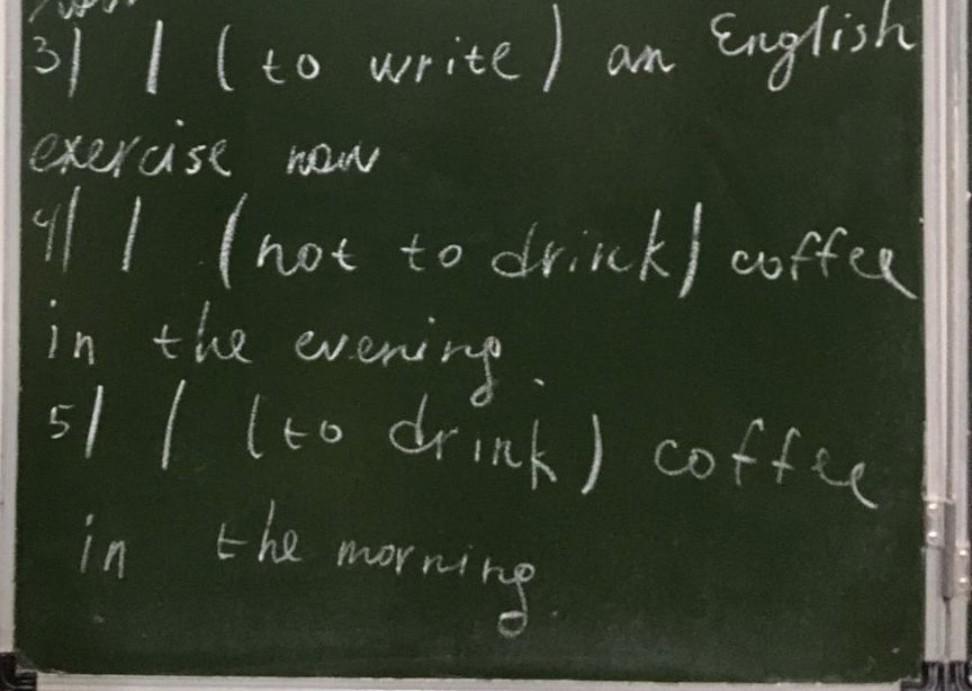 3) I (to write) an English
exercise now
4) I (not to drink) coffee
in the evening.
5) I (to drink) coffee
in the morning.